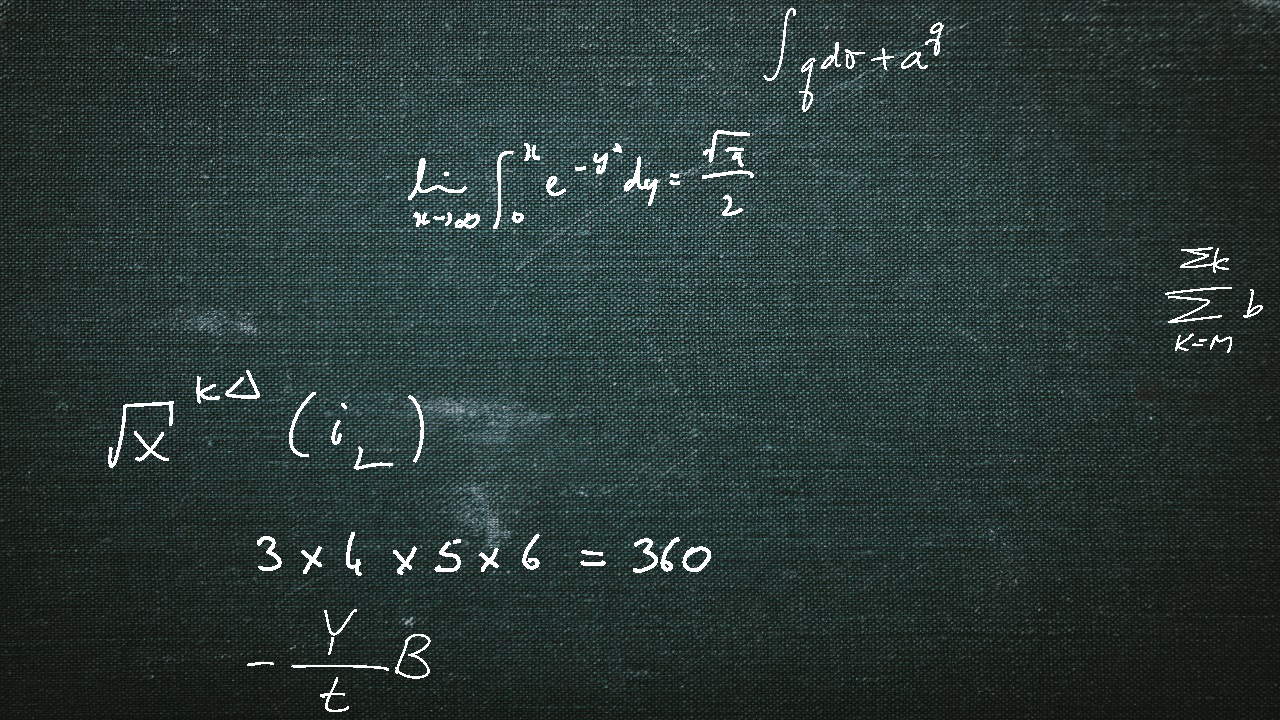 ∫ q dσ + a^q
lim_{x→∞} ∫_0^x e^{-y²} dy = √π/2
∑_{K=M}^{Σk} b
√x^{kΔ} (i_L)
3 × 4 × 5 × 6 = 360
- Y/t B